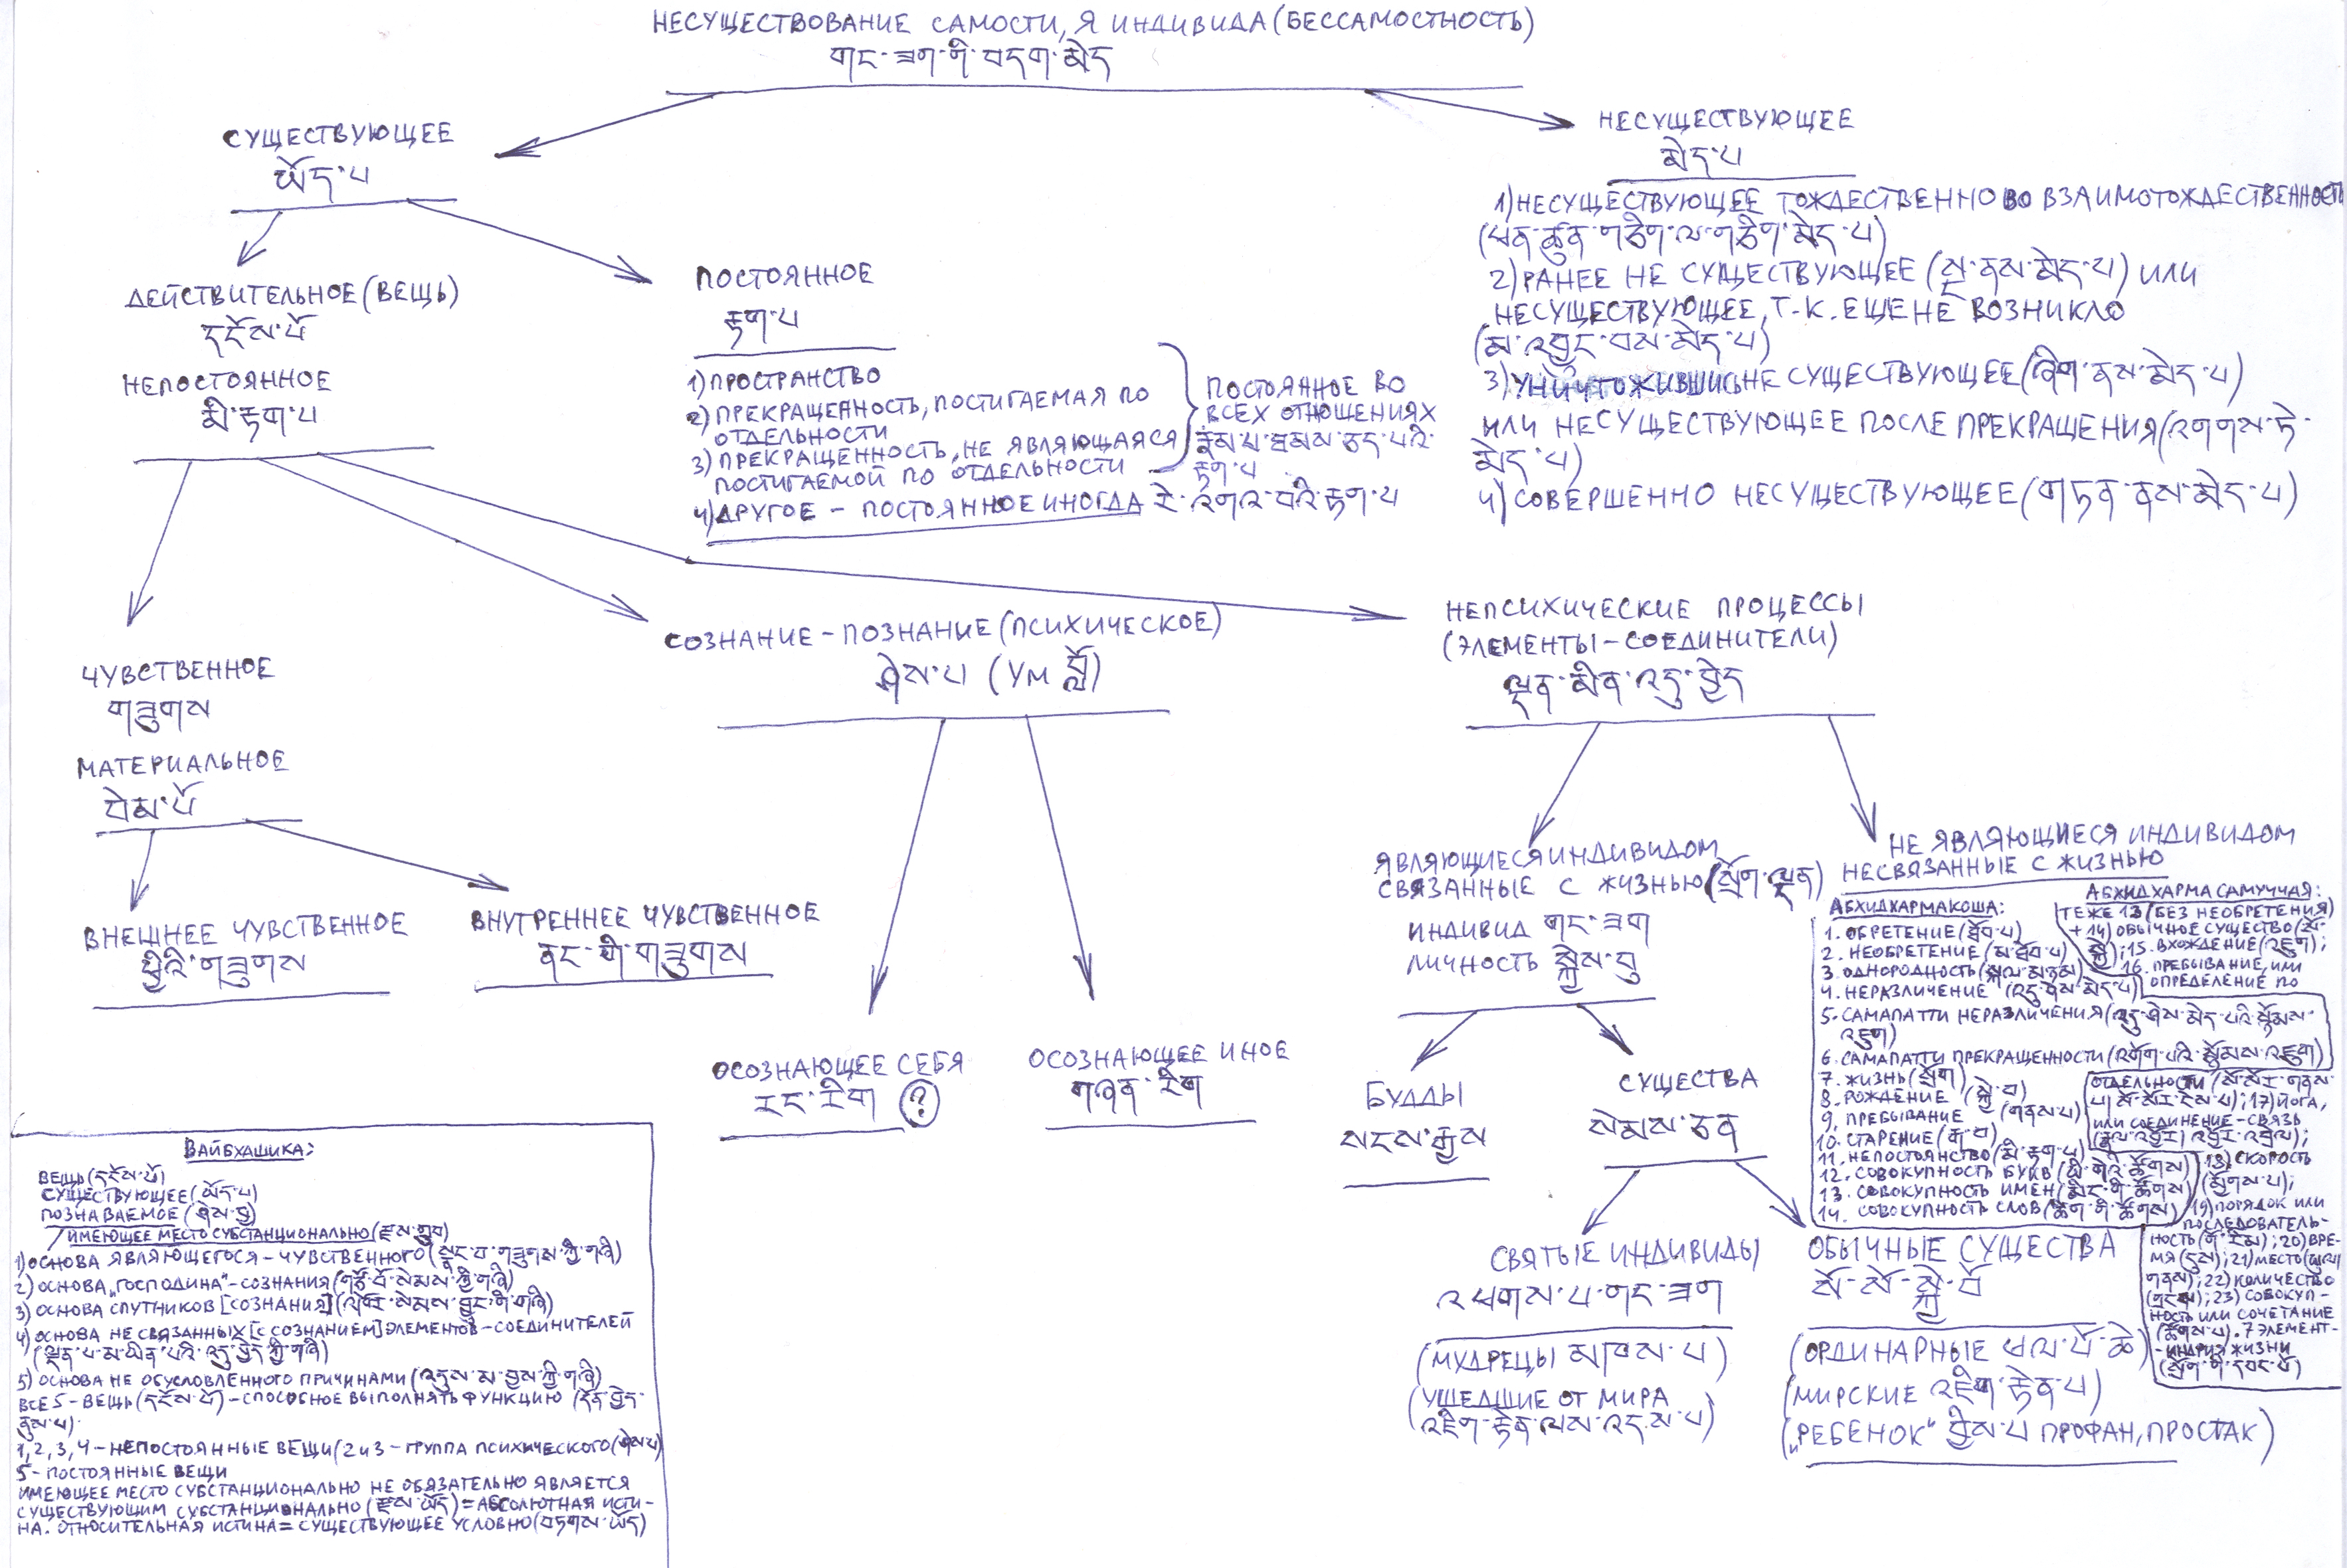 НЕСУЩЕСТВОВАНИЕ САМОСТИ, Я ИНДИВИДА (БЕССАМОСТНОСТЬ)
གང་ཟག་གི་བདག་མེད
СУЩЕСТВУЮЩЕЕ
ཡོད་པ
НЕСУЩЕСТВУЮЩЕЕ
མེད་པ
1) НЕСУЩЕСТВУЮЩЕЕ ТОЖДЕСТВЕННО ВО ВЗАИМОТОЖДЕСТВЕННОСТИ
(ཕན་ཚུན་གཅིག་ལ་གཅིག་མེད་པ)
2) РАНЕЕ НЕ СУЩЕСТВУЮЩЕЕ (སྔ་ནས་མེད་པ) ИЛИ
НЕСУЩЕСТВУЮЩЕЕ, Т-К. ЕЩЕ НЕ ВОЗНИКЛО
(མ་འབྱུང་བས་མེད་པ)
3) УНИЧТОЖИВШИСЬ НЕ СУЩЕСТВУЮЩЕЕ (ཞིག་ནས་མེད་པ)
ИЛИ НЕСУЩЕСТВУЮЩЕЕ ПОСЛЕ ПРЕКРАЩЕНИЯ (འགགས་ཏེ་
མེད་པ)
4) СОВЕРШЕННО НЕСУЩЕСТВУЮЩЕЕ (གཏན་ནས་མེད་པ)
ДЕЙСТВИТЕЛЬНОЕ (ВЕЩЬ)
དངོས་པོ
НЕПОСТОЯННОЕ
མི་རྟག་པ
ПОСТОЯННОЕ
རྟག་པ
1) ПРОСТРАНСТВО
2) ПРЕКРАЩЕННОСТЬ, ПОСТИГАЕМАЯ ПО
ОТДЕЛЬНОСТИ
3) ПРЕКРАЩЕННОСТЬ, НЕ ЯВЛЯЮЩАЯСЯ
ПОСТИГАЕМОЙ ПО ОТДЕЛЬНОСТИ
ПОСТОЯННОЕ ВО
ВСЕХ ОТНОШЕНИЯХ
རྣམ་པ་ཐམས་ཅད་པའི་
རྟག་པ
4) ДРУГОЕ – ПОСТОЯННОЕ ИНОГДА རེ་འགའ་བའི་རྟག་པ
ЧУВСТВЕННОЕ
གཟུགས
МАТЕРИАЛЬНОЕ
བེམ་པོ
СОЗНАНИЕ – ПОЗНАНИЕ (ПСИХИЧЕСКОЕ)
ཤེས་པ (УМ བློ)
НЕПСИХИЧЕСКИЕ ПРОЦЕССЫ
(ЭЛЕМЕНТЫ – СОЕДИНИТЕЛИ)
ལྡན་མིན་འདུ་བྱེད
ВНЕШНЕЕ ЧУВСТВЕННОЕ
ཕྱིའི་གཟུགས
ВНУТРЕННЕЕ ЧУВСТВЕННОЕ
ནང་གི་གཟུགས
ОСОЗНАЮЩЕЕ СЕБЯ
རང་རིག (?)
ОСОЗНАЮЩЕЕ ИНОЕ
གཞན་རིག
ЯВЛЯЮЩИЕСЯ ИНДИВИДОМ
СВЯЗАННЫЕ С ЖИЗНЬЮ (སྲོག་ལྡན)
ИНДИВИД གང་ཟག
ЛИЧНОСТЬ སྐྱེས་བུ
БУДДЫ
སངས་རྒྱས
СУЩЕСТВА
སེམས་ཅན
СВЯТЫЕ ИНДИВИДЫ
འཕགས་པ་གང་ཟག
(МУДРЕЦЫ མཁས་པ)
(УШЕДШИЕ ОТ МИРА
འཇིག་རྟེན་ལས་འདས་པ)
ОБЫЧНЫЕ СУЩЕСТВА
སོ་སོ་སྐྱེ་བོ
(ОРДИНАРНЫЕ ཕལ་པོ་ཆེ)
(МИРСКИЕ འཇིག་རྟེན་པ)
(„РЕБЕНОК" བྱིས་པ ПРОФАН, ПРОСТАК)
НЕ ЯВЛЯЮЩИЕСЯ ИНДИВИДОМ
НЕСВЯЗАННЫЕ С ЖИЗНЬЮ
АБХИДХАРМАКОША:
1. ОБРЕТЕНИЕ (ཐོབ་པ)
2. НЕОБРЕТЕНИЕ (མ་ཐོབ་པ)
3. ОДНОРОДНОСТЬ (སྐལ་མཉམ)
4. НЕРАЗЛИЧЕНИЕ (འདུ་ཤེས་མེད་པ)
5. САМАПАТТИ НЕРАЗЛИЧЕНИЯ (འདུ་ཤེས་མེད་པའི་སྙོམས་
འཇུག)
6. САМАПАТТИ ПРЕКРАЩЕННОСТИ (འགོག་པའི་སྙོམས་འཇུག)
7. ЖИЗНЬ (སྲོག)
8. РОЖДЕНИЕ (སྐྱེ་བ)
9. ПРЕБЫВАНИЕ (གནས་པ)
10. СТАРЕНИЕ (རྒ་བ)
11. НЕПОСТОЯНСТВО (མི་རྟག་པ)
12. СОВОКУПНОСТЬ БУКВ (ཡི་གེའི་ཚོགས)
13. СОВОКУПНОСТЬ ИМЕН (མིང་གི་ཚོགས)
14. СОВОКУПНОСТЬ СЛОВ (ཚིག་གི་ཚོགས)
АБХИДХАРМА САМУЧЧАЯ:
ТЕ ЖЕ 13 (БЕЗ НЕОБРЕТЕНИЯ)
+ 14) ОБЫЧНОЕ СУЩЕСТВО (སོ་
སྐྱེ); 15. ВХОЖДЕНИЕ (འཇུག);
16. ПРЕБЫВАНИЕ, ИЛИ
ОПРЕДЕЛЕНИЕ ПО
ОТДЕЛЬНОСТИ (སོ་སོར་གནས་
པ། སོ་སོར་ངེས་པ); 17) ЙОГА,
ИЛИ СОЕДИНЕНИЕ – СВЯЗЬ
(རྣལ་འབྱོར། འབྱོར་འབྲེལ);
18) СКОРОСТЬ
(མགྱོགས་པ);
19) ПОРЯДОК ИЛИ
ПОСЛЕДОВАТЕЛЬ-
НОСТЬ (གོ་རིམ); 20) ВРЕ-
МЯ (དུས); 21) МЕСТО (ཡུལ།
གནས); 22) КОЛИЧЕСТВО
(གྲངས); 23) СОВОКУП-
НОСТЬ ИЛИ СОЧЕТАНИЕ
(ཚོགས་པ). 7 ЭЛЕМЕНТ –
– ИНДРИЯ ЖИЗНИ
(སྲོག་གི་དབང་པོ)
ВАЙБХАШИКА:
ВЕЩЬ (དངོས་པོ)
СУЩЕСТВУЮЩЕЕ (ཡོད་པ)
ПОЗНАВАЕМОЕ (ཤེས་བྱ)
ИМЕЮЩЕЕ МЕСТО СУБСТАНЦИОНАЛЬНО (རྫས་གྲུབ)
1) ОСНОВА ЯВЛЯЮЩЕГОСЯ – ЧУВСТВЕННОГО (སྣང་བ་གཟུགས་ཀྱི་གཞི)
2) ОСНОВА „ГОСПОДИНА" – СОЗНАНИЯ (གཙོ་བོ་སེམས་ཀྱི་གཞི)
3) ОСНОВА СПУТНИКОВ [СОЗНАНИЯ] (འཁོར་སེམས་བྱུང་གི་གཞི)
4) ОСНОВА НЕ СВЯЗАННЫХ [С СОЗНАНИЕМ] ЭЛЕМЕНТОВ – СОЕДИНИТЕЛЕЙ
(ལྡན་པ་མ་ཡིན་པའི་འདུ་བྱེད་ཀྱི་གཞི)
5) ОСНОВА НЕ ОБУСЛОВЛЕННОГО ПРИЧИНАМИ (འདུས་མ་བྱས་ཀྱི་གཞི)
ВСЕ 5 – ВЕЩЬ (དངོས་པོ) – СПОСОБНОЕ ВЫПОЛНЯТЬ ФУНКЦИЮ (དོན་བྱེད་
ནུས་པ).
1, 2, 3, 4 – НЕПОСТОЯННЫЕ ВЕЩИ (2 и 3 – ГРУППА ПСИХИЧЕСКОГО (ཤེས་པ)
5 – ПОСТОЯННЫЕ ВЕЩИ
ИМЕЮЩЕЕ МЕСТО СУБСТАНЦИОНАЛЬНО НЕ ОБЯЗАТЕЛЬНО ЯВЛЯЕТСЯ
СУЩЕСТВУЮЩИМ СУБСТАНЦИОНАЛЬНО (རྫས་ཡོད) = АБСОЛЮТНАЯ ИСТИ-
НА. ОТНОСИТЕЛЬНАЯ ИСТИНА = СУЩЕСТВУЮЩЕЕ УСЛОВНО (བཏགས་ཡོད)